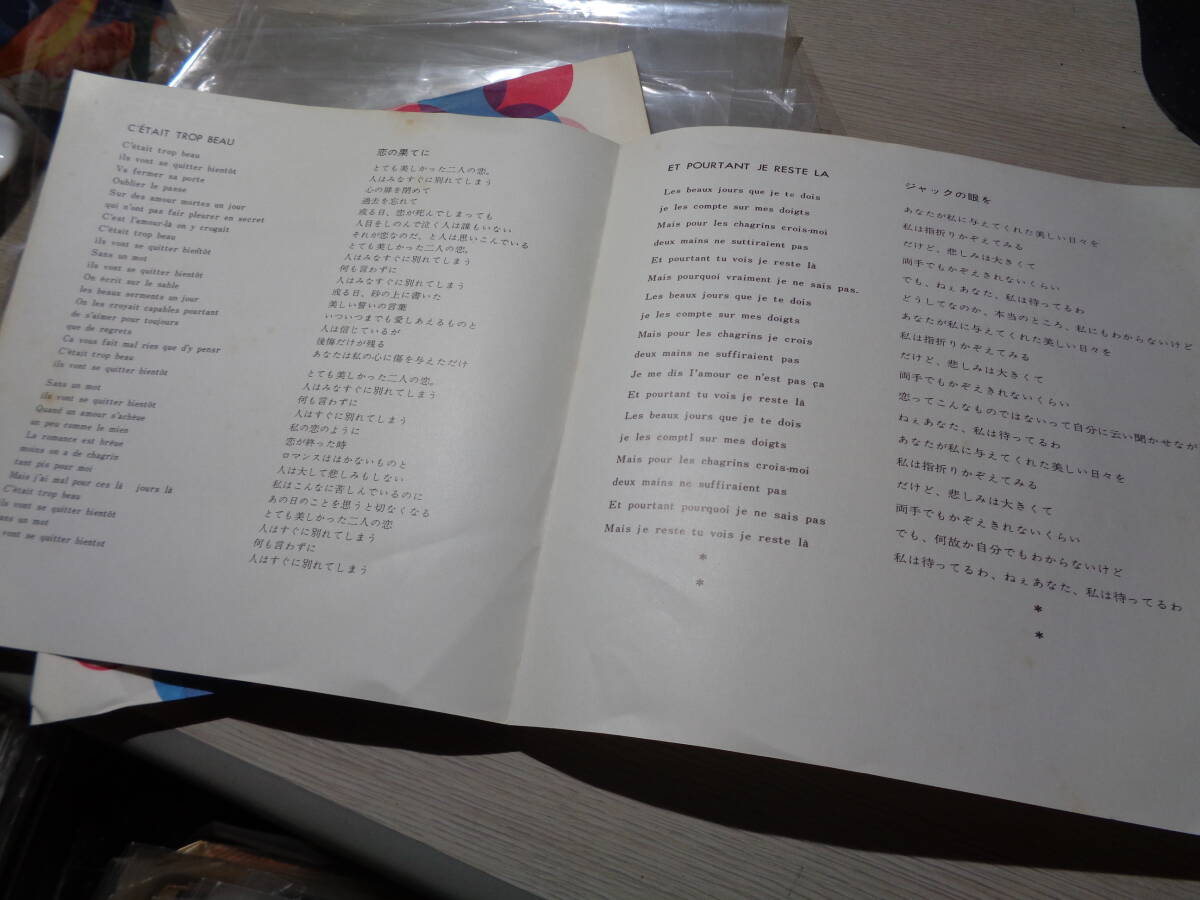 C'ÉTAIT TROP BEAU
C'était trop beau
ils vont se quitter bientôt
Va fermer sa porte
Oublier le passe
Sur des amour mortes un jour
qui n'ont pas fair pleurer en secret
C'est l'amour-là on y crogait
C'était trop beau
ils vont se quitter bientôt
Sans un mot
ils vont se quitter bientôt
On écrit sur le sable
les beaux serments un jour
On les croyait capables pourtant
de s'aimer pour toujours
que de regrets
Ca vous fait mal rien que d'y pensr
C'était trop beau
ils vont se quitter bientôt
Sans un mot
ils vont se quitter bientôt
Quand un amour s'achèue
un peu comme le mien
La romance est brèue
moins on a de chagrin
tant pis pour moi
Mais j'ai mal pour ces là jours là
C'était trop beau
ils vont se quitter bientôt
Sans un mot
vont se quitter bientot
恋の果てに
とても美しかった二人の恋。
人はみなすぐに別れてしまう
心の扉を閉めて
過去を忘れて
或る日、恋が死んでしまっても
人目をしのんで泣く人は誰もいない
それが恋なのだ、と人は思いこんでいる
とても美しかった二人の恋。
人はみなすぐに別れてしまう
何も言わずに
人はみなすぐに別れてしまう
或る日、砂の上に書いた
美しい誓いの言葉
いついつまでも愛しあえるものと
人は信じているが
後悔だけが残る
あなたは私の心に傷を与えただけ
とても美しかった二人の恋。
人はみなすぐに別れてしまう
何も言わずに
人はすぐに別れてしまう
私の恋のように
恋が終った時
ロマンスははかないものと
人は大して悲しみもしない
私はこんなに苦しんでいるのに
あの日のことを思うと切なくなる
とても美しかった二人の恋
人はすぐに別れてしまう
何も言わずに
人はすぐに別れてしまう
ET POURTANT JE RESTE LA
Les beaux jours que je te dois
je les compte sur mes doigts
Mais pour les chagrins crois-moi
deux mains ne suttiraient pas
Et pourtant tu vois je reste là
Mais pourquoi vraiment je ne sais pas.
Les beaux jours que je te dois
je les compte sur mes doigts
Mais pour les chagrins je crois
deux mains ne suffiraient pas
Je me dis l'amour ce n'est pas ça
Et pourtant tu vois je reste là
Les beaux jours que je te dois
je les comptl sur mes doigts
Mais pour les chagrins crois-moi
deux mains ne suffiraient pas
Et pourtant pourquoi je ne sais pas
Mais je reste tu vois je reste là
*
*
ジャックの眼を
あなたが私に与えてくれた美しい日々を
私は指折りかぞえてみる
だけど、悲しみは大きくて
両手でもかぞえきれないくらい
でも、ねぇあなた、私は待ってるわ
どうしてなのか、本当のところ、私にもわからないけど
あなたが私に与えてくれた美しい日々を
私は指折りかぞえてみる
だけど、悲しみは大きくて
両手でもかぞえきれないくらい
恋ってこんなものではないって自分に云い聞かせなが
ねぇあなた、私は待ってるわ
あなたが私に与えてくれた美しい日々を
私は指折りかぞえてみる
だけど、悲しみは大きくて
両手でもかぞえきれないくらい
でも、何故か自分でもわからないけど
私は待ってるわ、ねぇあなた、私は待ってるわ
*
*